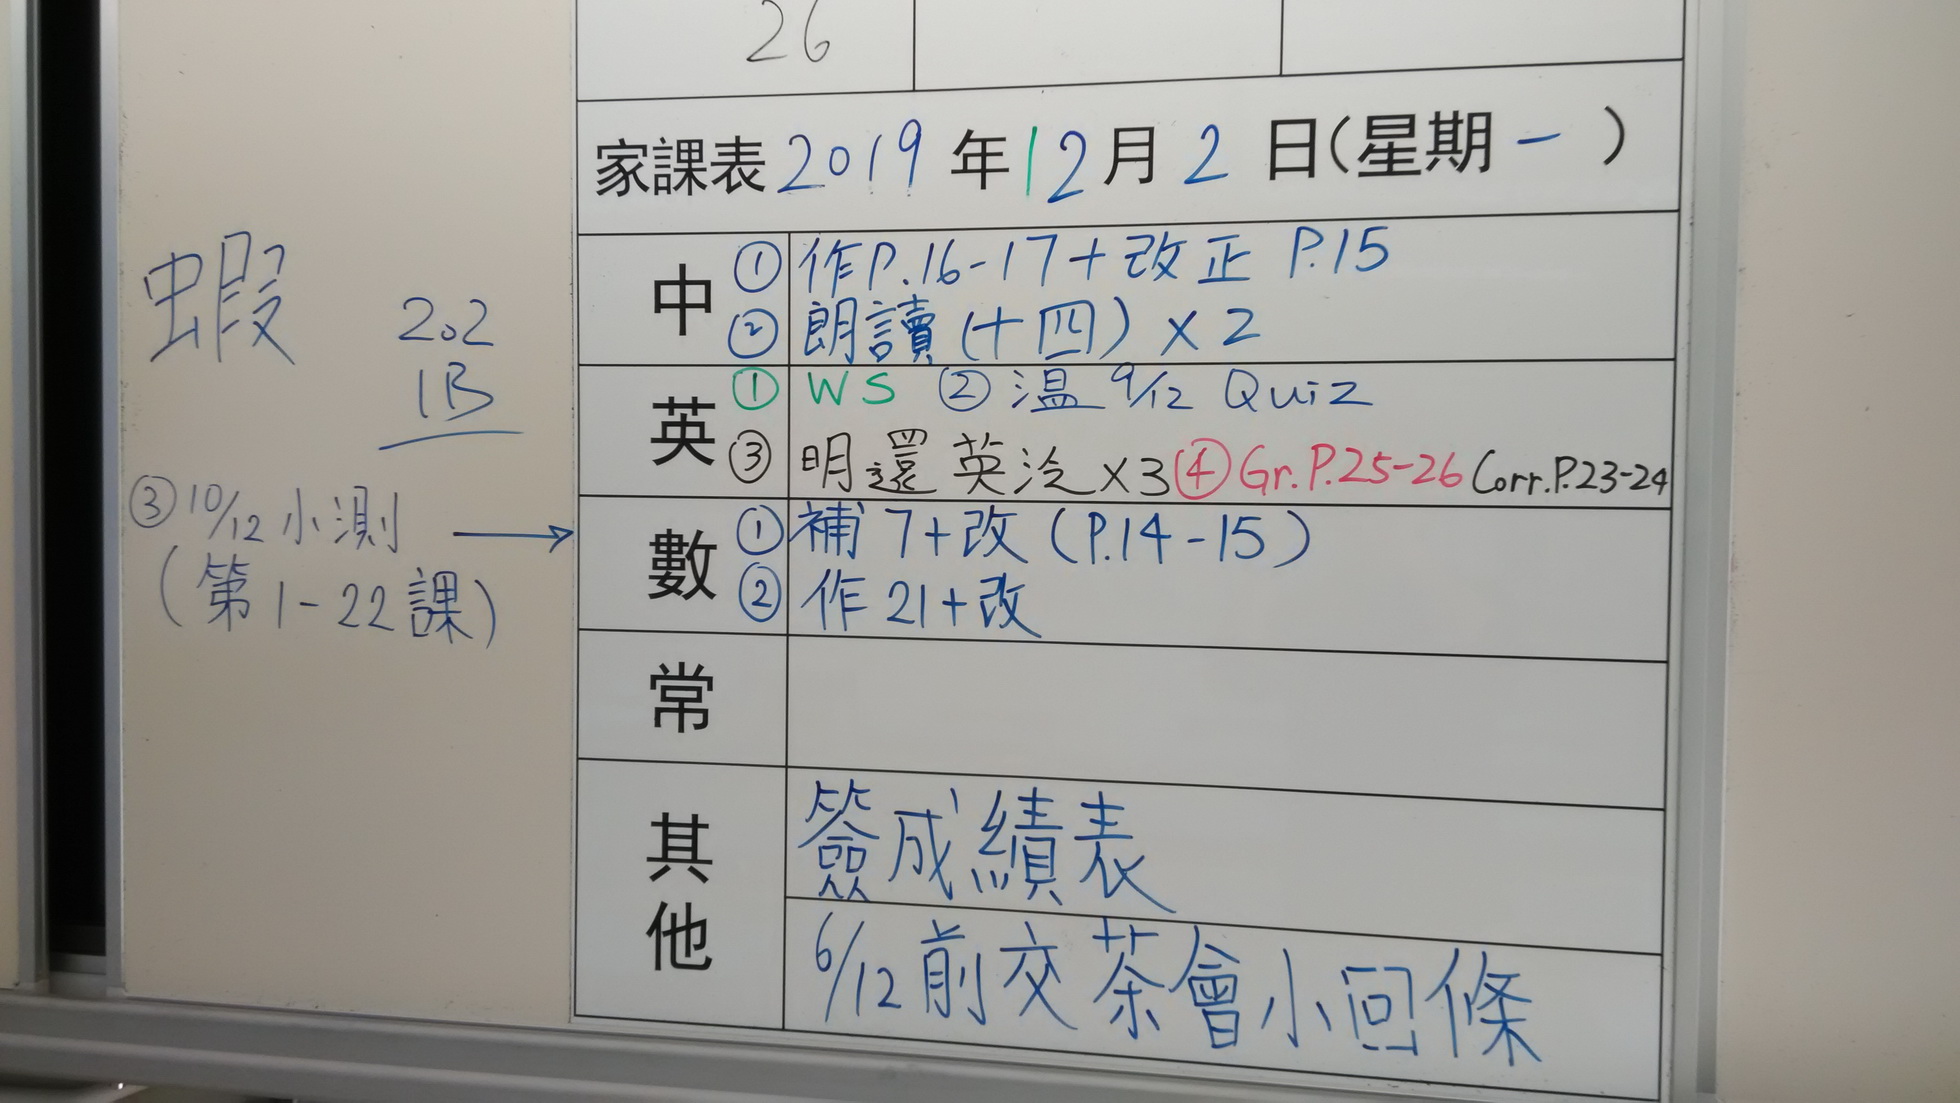 26
家課表 2019 年 12 月 2 日(星期 一 )
中 ① 作P.16-17+改正 P.15
② 朗讀 (十四) × 2
英 ① WS ② 溫 9/12 Quiz
③ 明還英泠 ×3 ④ Gr.P.25-26 Corr.P.23-24
數 ① 補7+改 (P.14-15)
② 作21+改
常
其他
簽成績表
6/12前交茶會小回條
蝦
202
1B
③ 10/12 小測 →
(第1-22課)